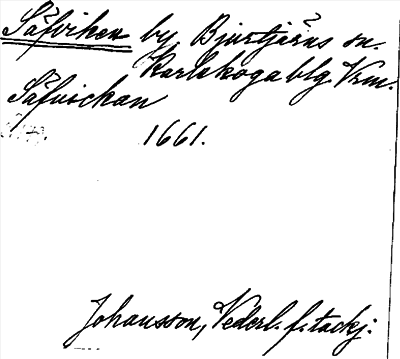 Säfviken by, Bjurtjärns sn.
Karlskoga blg. Vrm.
Säfwickan
1661.
Johansson, Vederl. f. tackj.